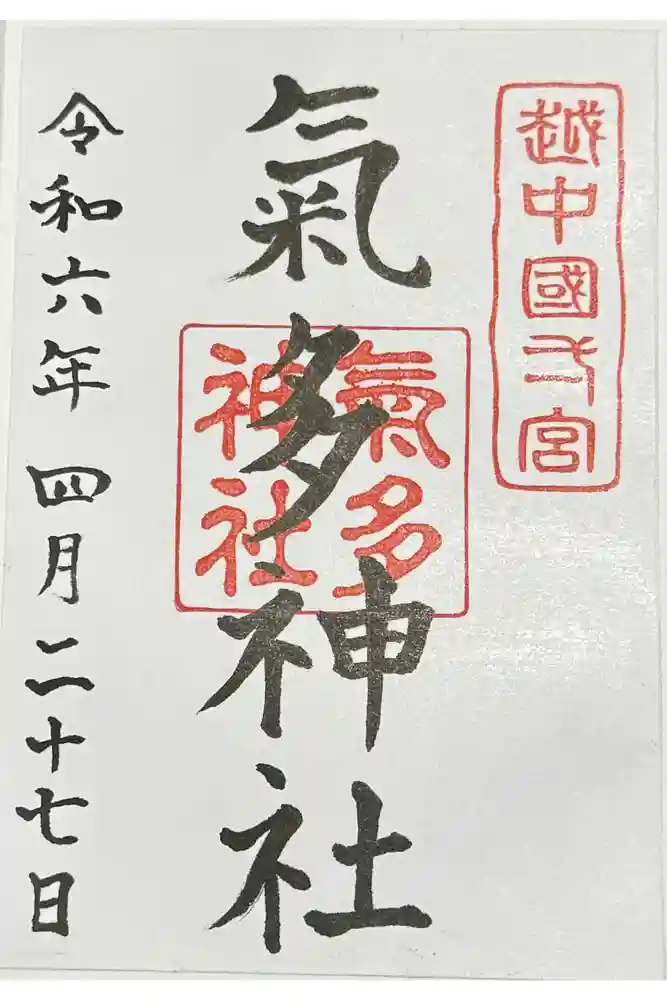 越中國弌宮
氣多神社
氣多
神社
令和六年 四月二十七日